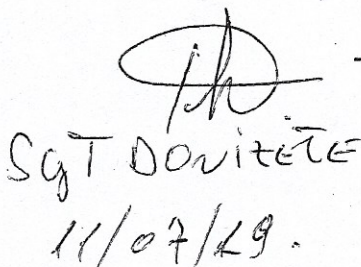 Sgt DONizETE
11/07/19.